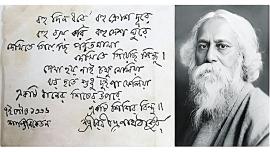 বহু দিন ধরে' বহু ক্রোশ দূরে
বহু ব্যয় করি বহু দেশ ঘুরে
দেখিতে গিয়েছি পর্বতমালা
দেখিতে গিয়েছি সিন্ধু।
দেখা হয় নাই চক্ষু মেলিয়া
ঘর হতে শুধু দুই পা ফেলিয়া
একটি ধানের শিষের উপরে
একটি শিশির বিন্দু॥
পৌষ
শান্তিনিকেতন